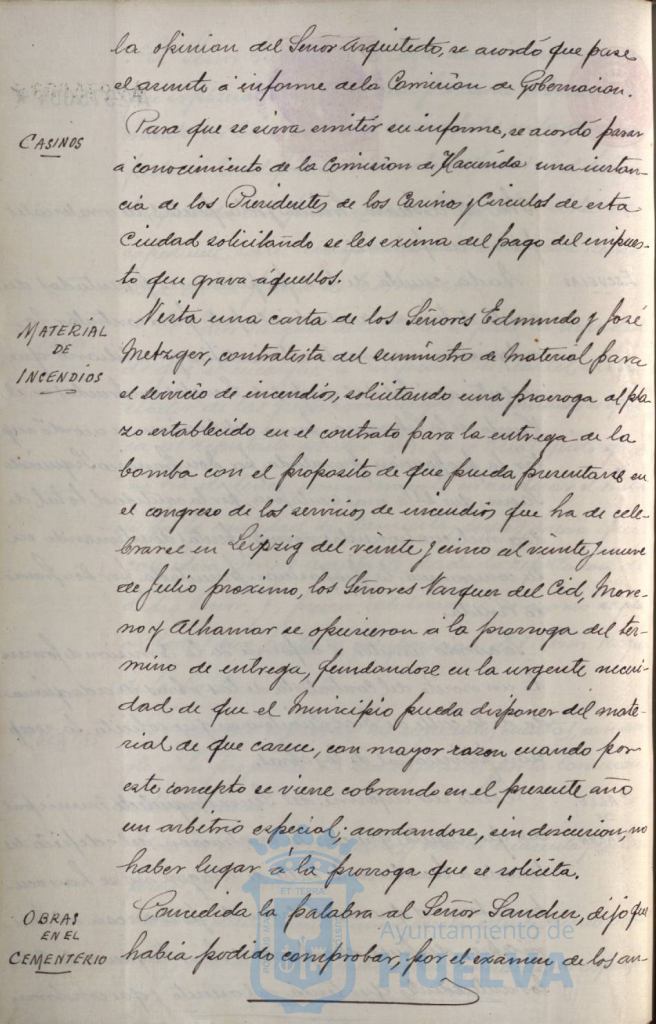 la opinion del Señor Arquitecto, se acordó que pase
el asunto á informe de la Comision de Gobernacion.
CASINOS
Para que se sirva emitir su informe, se acordó pasar
á conocimiento de la Comision de Hacienda una instan-
cia de los Presidentes de los Casinos y Circulos de esta
Ciudad solicitando se les exima del pago del impues-
to que grava áquellos.
MATERIAL
DE
INCENDIOS
Vista una carta de los Señores Edmundo y José
Metzger, contratista del suministro de Material para
el servicio de incendios, solicitando una prorroga al pla-
zo establecido en el contrato para la entrega de la
bomba con el proposito de que pueda presentarse en
el congreso de los servicios de incendios que ha de cele-
brarse en Leipzig del veinte y cinco al veinte y nueve
de Julio proximo, los Señores Vazquez del Cid, More-
no y Alhamar se opusieron á la prorroga del ter-
mino de entrega, fundandose en la urgente necesi-
dad de que el Municipio pueda disponer del mate-
rial de que carece, con mayor razon cuando por
este concepto se viene cobrando en el presente año
un arbitrio especial; acordandose, sin discusion, no
haber lugar á la prorroga que se solicita.
OBRAS
EN EL
CEMENTERIO
Concedida la palabra al Señor Sanchez, dijo que
habia podido comprobar, por el examen de los an-
ET TERRA
Ayuntamiento de
HUELVA